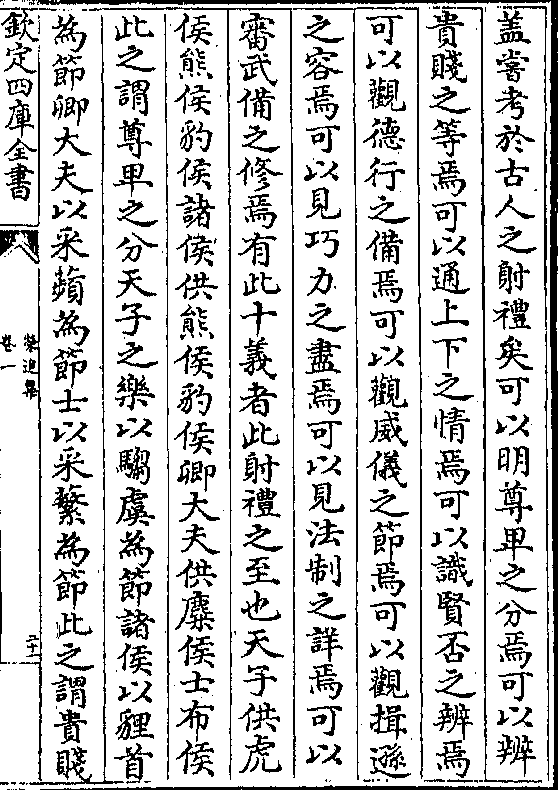 盖嘗考於古人之射禮矣可以明尊卑之分焉可以辨
貴賤之等焉可以通上下之情焉可以識賢否之辨焉
可以觀德行之備焉可以觀威儀之節焉可以觀揖遜
之容焉可以見巧力之盡焉可以見法制之詳焉可以
審武備之修焉有此十義者此射禮之至也天子供虎
侯熊侯豹侯諸侯供熊侯豹侯卿大夫供麋侯士布侯
此之謂尊卑之分天子之樂以騶虞為節諸侯以貍首
為節卿大夫以采蘋為節士以采蘩為節此之謂貴賤
欽定四庫全書
榮進集
卷一
二十